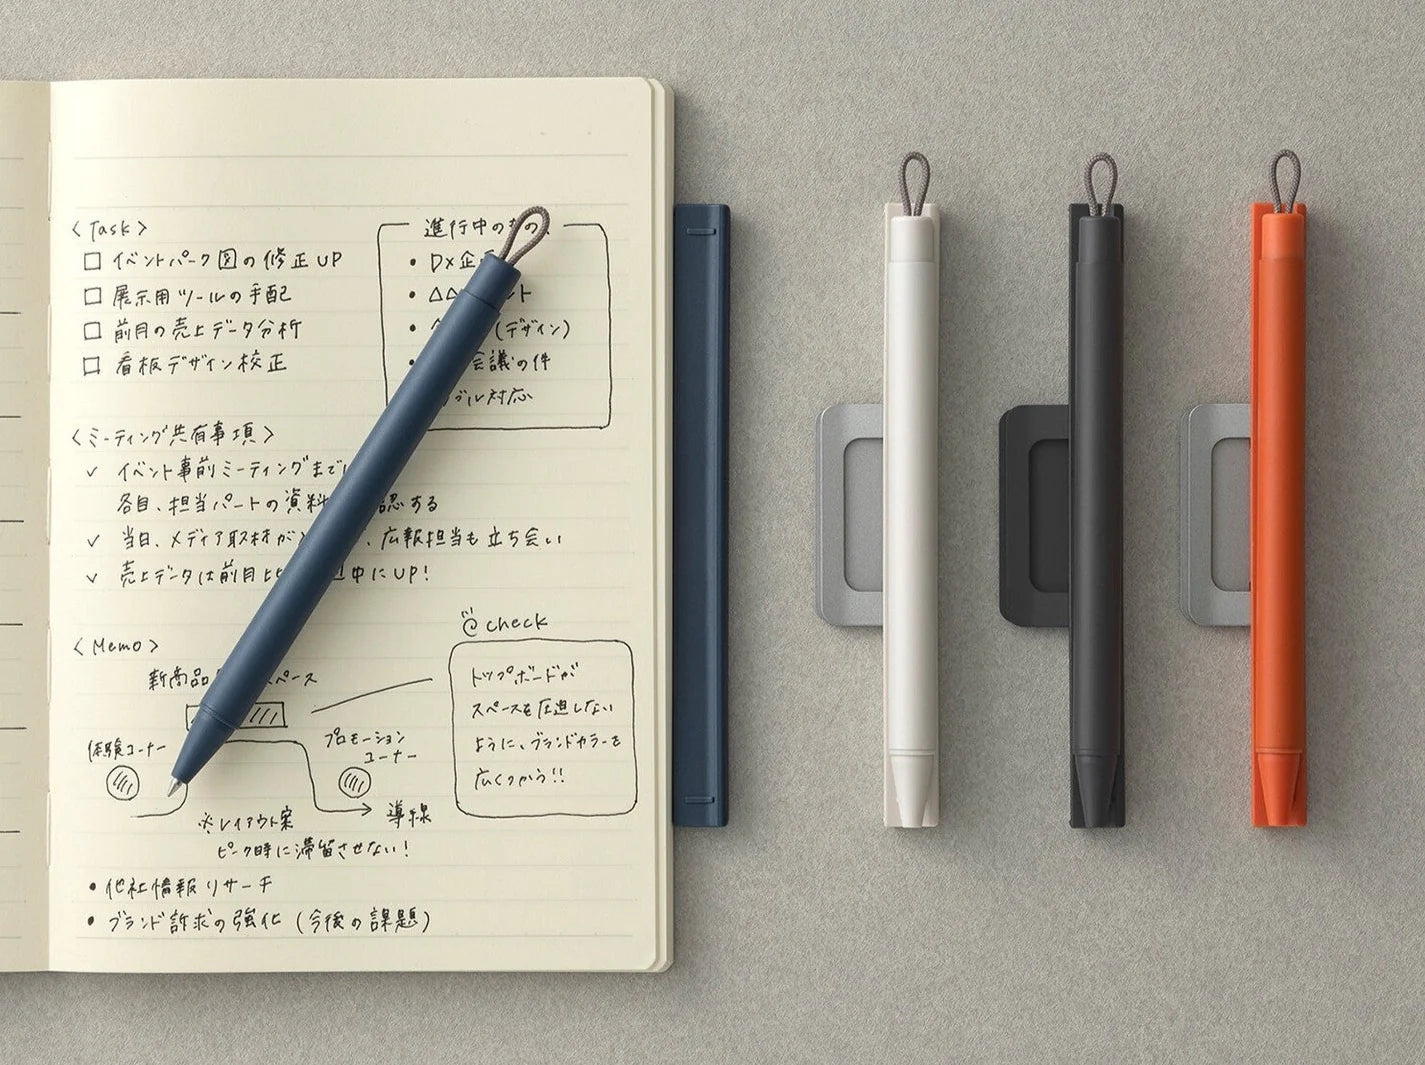 <Task>
□ イベントパーク図の修正UP
□ 展示用ツールの手配
□ 前月の売上データ分析
□ 看板デザイン校正
進行中のもの
• DX企
• △△ ント
• (デザイン)
• 会議の件
ブル対応
<ミーティング共有事項>
✓ イベント事前ミーティングまでに
各自、担当パートの資料 認する
✓ 当日、メディア取材が 、広報担当も立ち会い
✓ 売上データは前月比 中にUP!
<Memo>
新商品 スペース
体験コーナー
プロモーション
コーナー
導線
※レイアウト案
ピーク時に滞留させない!
check
トップボードが
スペースを圧迫しない
ように、ブランドカラーを
広くつかう!!
• 他社情報リサーチ
• ブランド訴求の強化 (今後の課題)